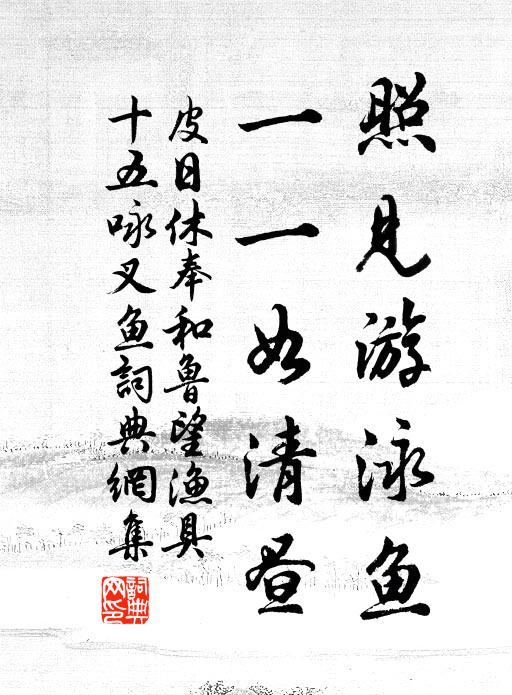 照見游泳魚
一一如清昼
皮日休奉和魯望漁具
十五咏叉魚詞典網集
詞典
网印